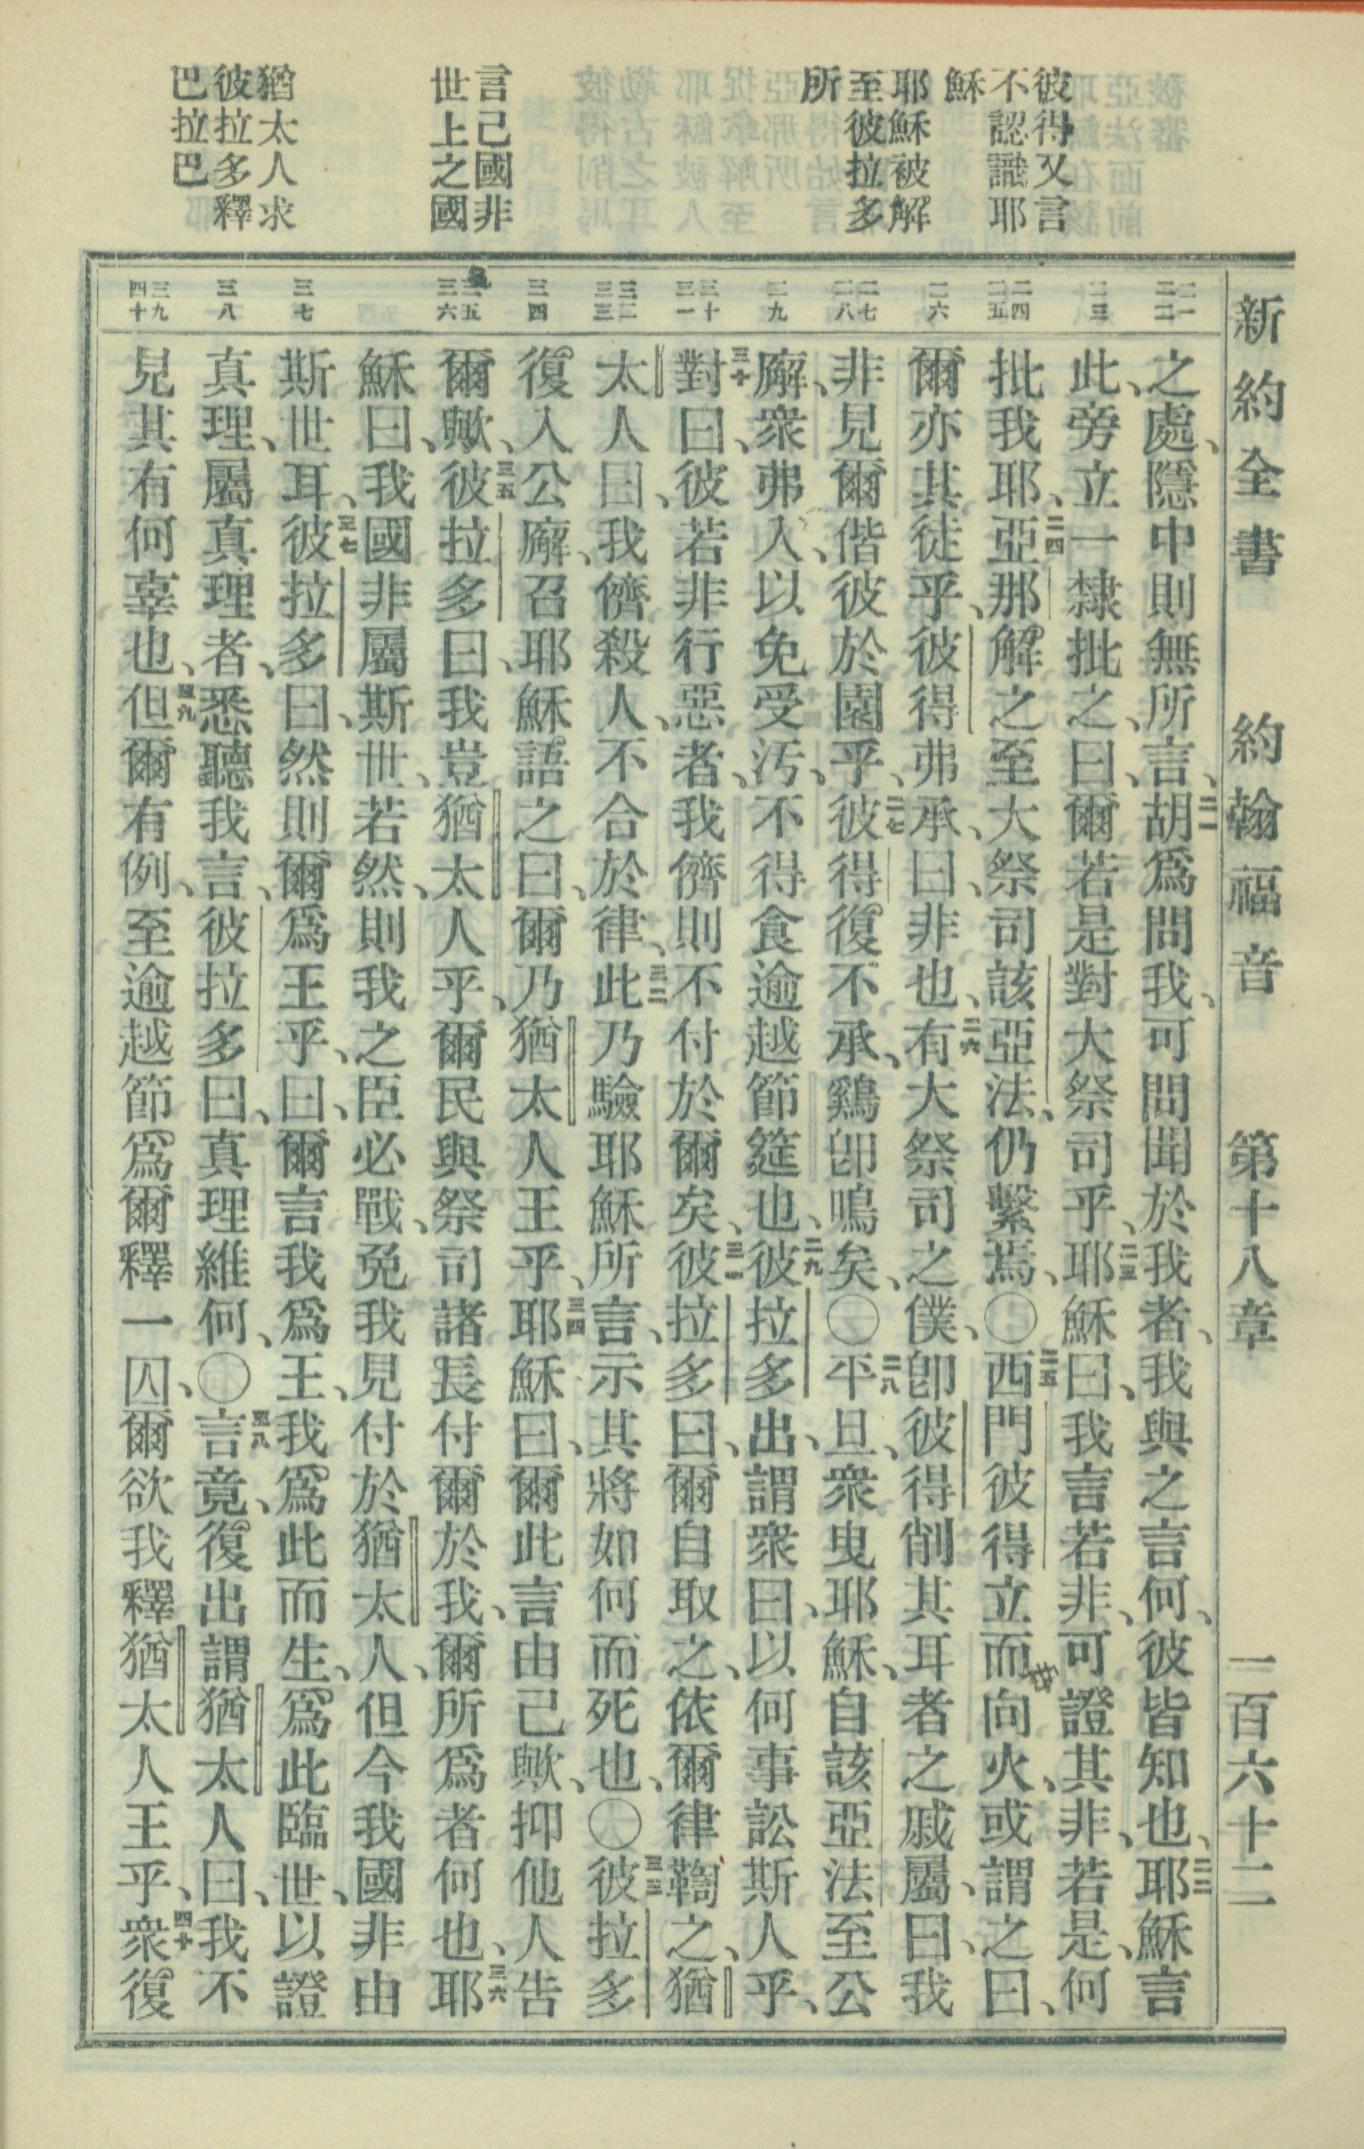 新約全書 約翰福音 第十八章 一百六十二
彼得又言
不認識耶
穌
耶穌被解
至彼拉多
所
言己國非
世上之國
猶太人求
彼拉多釋
巴拉巴
二一 二二
二三
二四 二五
二六
二七 二八
二九
三十 三一
三二 三三
三四
三五 三六
三七
三八
三九 四十
之處、隱中則無所言、二一胡爲問我、可問聞於我者、我與之言何、彼皆知也、二二耶穌言
此、旁立一隸批之、曰、爾若是對大祭司乎、二三耶穌曰、我言若非、可證其非、若是、何
批我耶、二四亞那解之至大祭司該亞法、仍繫焉、〇二五西門彼得立而向火、或謂之曰、
爾亦其徒乎、彼得弗承、曰、非也、二六有大祭司之僕、卽彼得削其耳者之戚屬、曰、我
非見爾偕彼於園乎、二七彼得復不承、鷄卽鳴矣、〇二八平旦、衆曳耶穌、自該亞法至公
廨、衆弗入、以免受汚、不得食逾越節筵也、二九彼拉多出、謂衆曰、以何事訟斯人乎、
三十對曰、彼若非行惡者、我儕則不付於爾矣、三一彼拉多曰、爾自取之、依爾律鞫之、猶
太人曰、我儕殺人、不合於律、三二此乃驗耶穌所言、示其將如何而死也、〇三三彼拉多
復入公廨、召耶穌語之曰、爾乃猶太人王乎、三四耶穌曰、爾此言由己歟、抑他人告
爾歟、三五彼拉多曰、我豈猶太人乎、爾民與祭司諸長付爾於我、爾所爲者何也、三六耶
穌曰、我國非屬斯世、若然、則我之臣必戰、免我見付於猶太人、但今我國非由
斯世耳、三七彼拉多曰、然則爾爲王乎、曰、爾言我爲王、我爲此而生、爲此臨世、以證
真理、屬真理者、悉聽我言、彼拉多曰、真理維何、〇三八言竟、復出謂猶太人曰、我不
見其有何辜也、三九但爾有例、至逾越節、爲爾釋一囚、爾欲我釋猶太人王乎、四十衆復